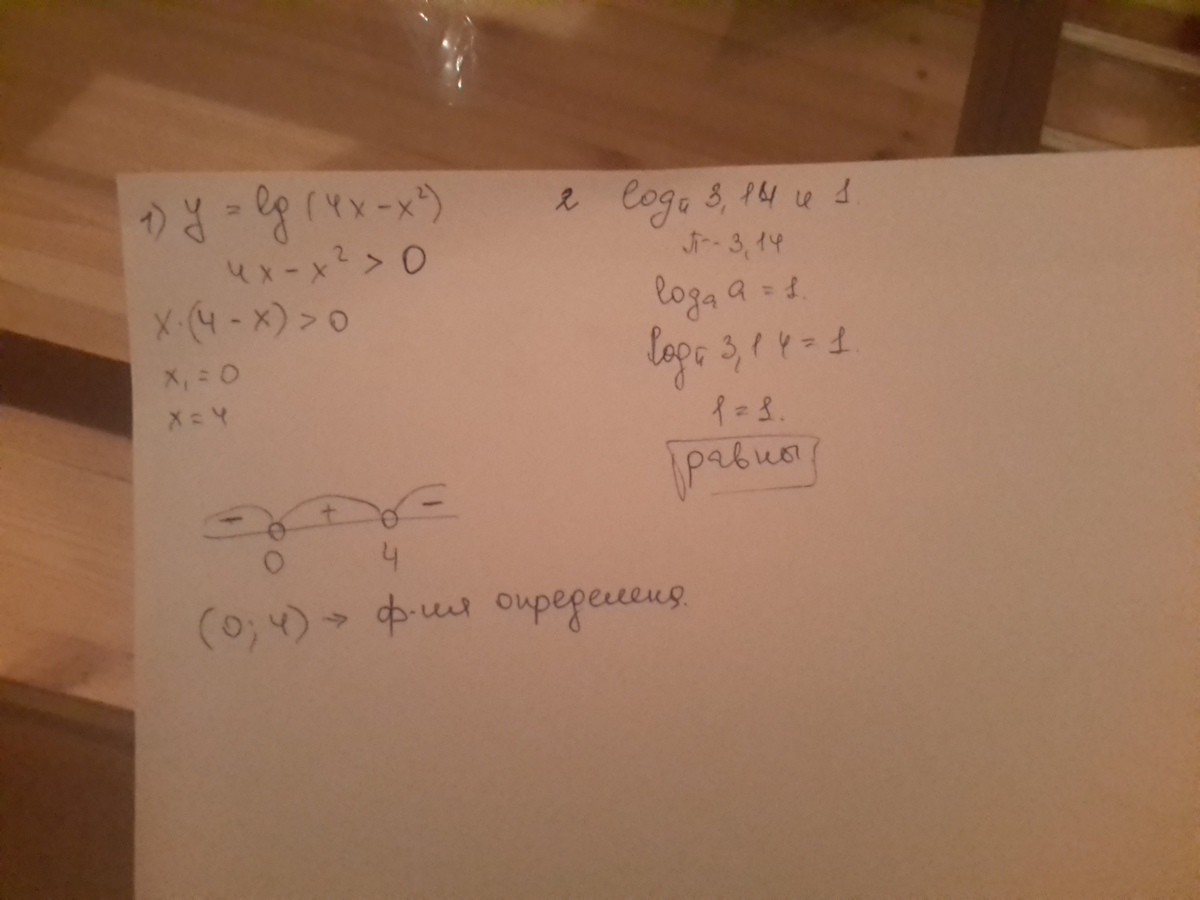 1) y = lg (4x - x²)
4x - x² > 0
x·(4 - x) > 0
x₁ = 0
x = 4
- + -
0 4
(0; 4) → ф-ия определена.
2 logπ 3,14 и 1.
π - 3,14
logₐ a = 1.
logπ 3,14 = 1.
1 = 1.
равны